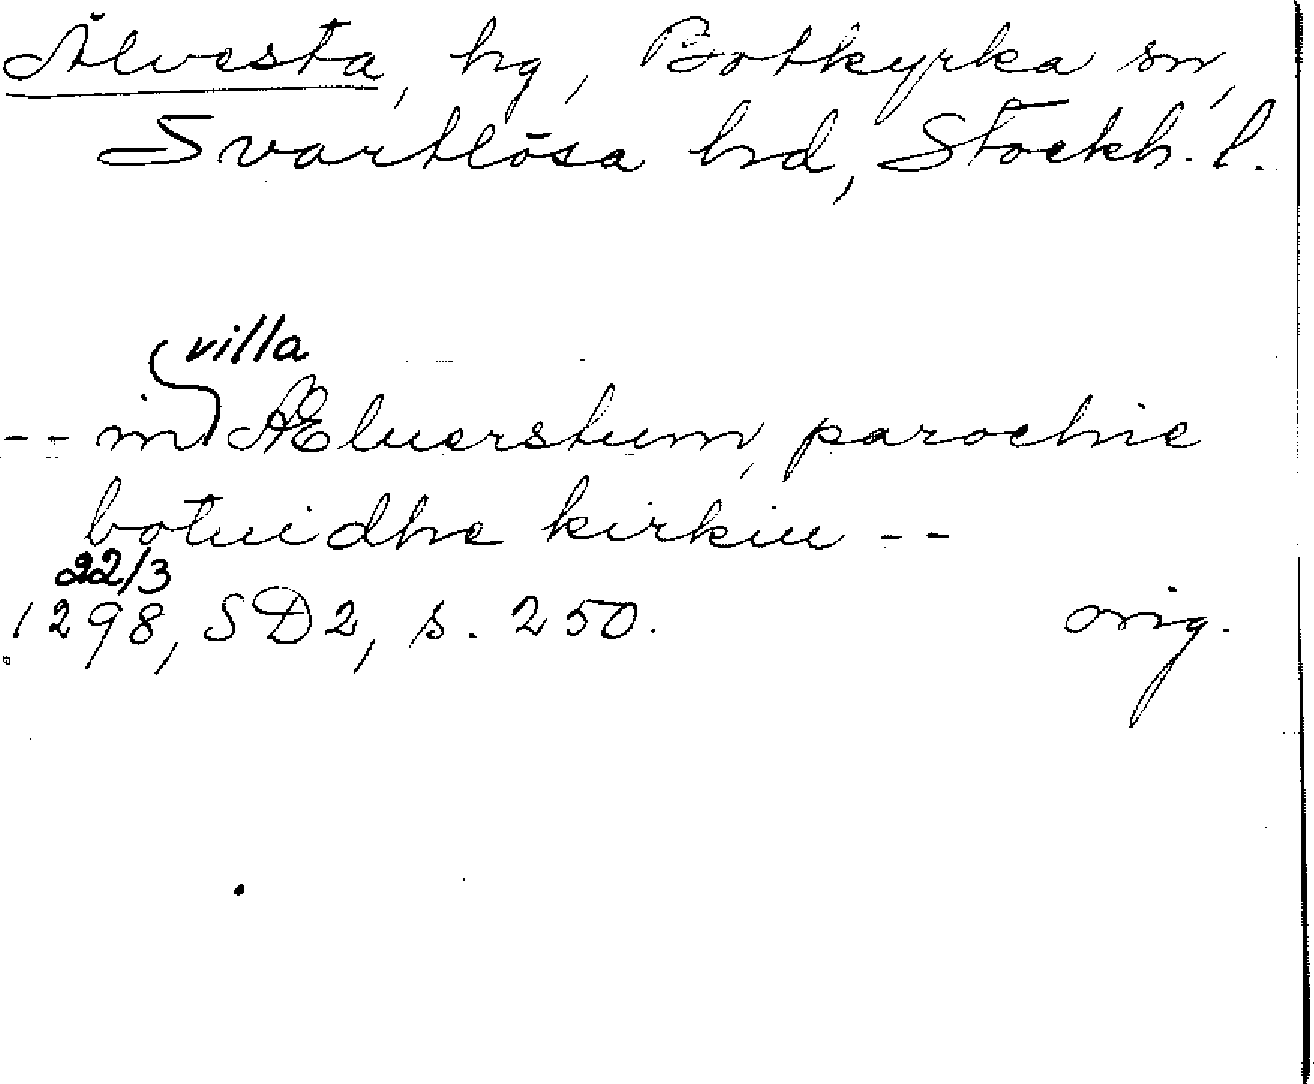 Älvesta, hg, Botkyrka sn,
Svartlösa hd, Stockh. l.
villa
-- in Æluerstum, parochie
botuidhe kirkiu --
22/3
1298, SD2, s. 250. orig.